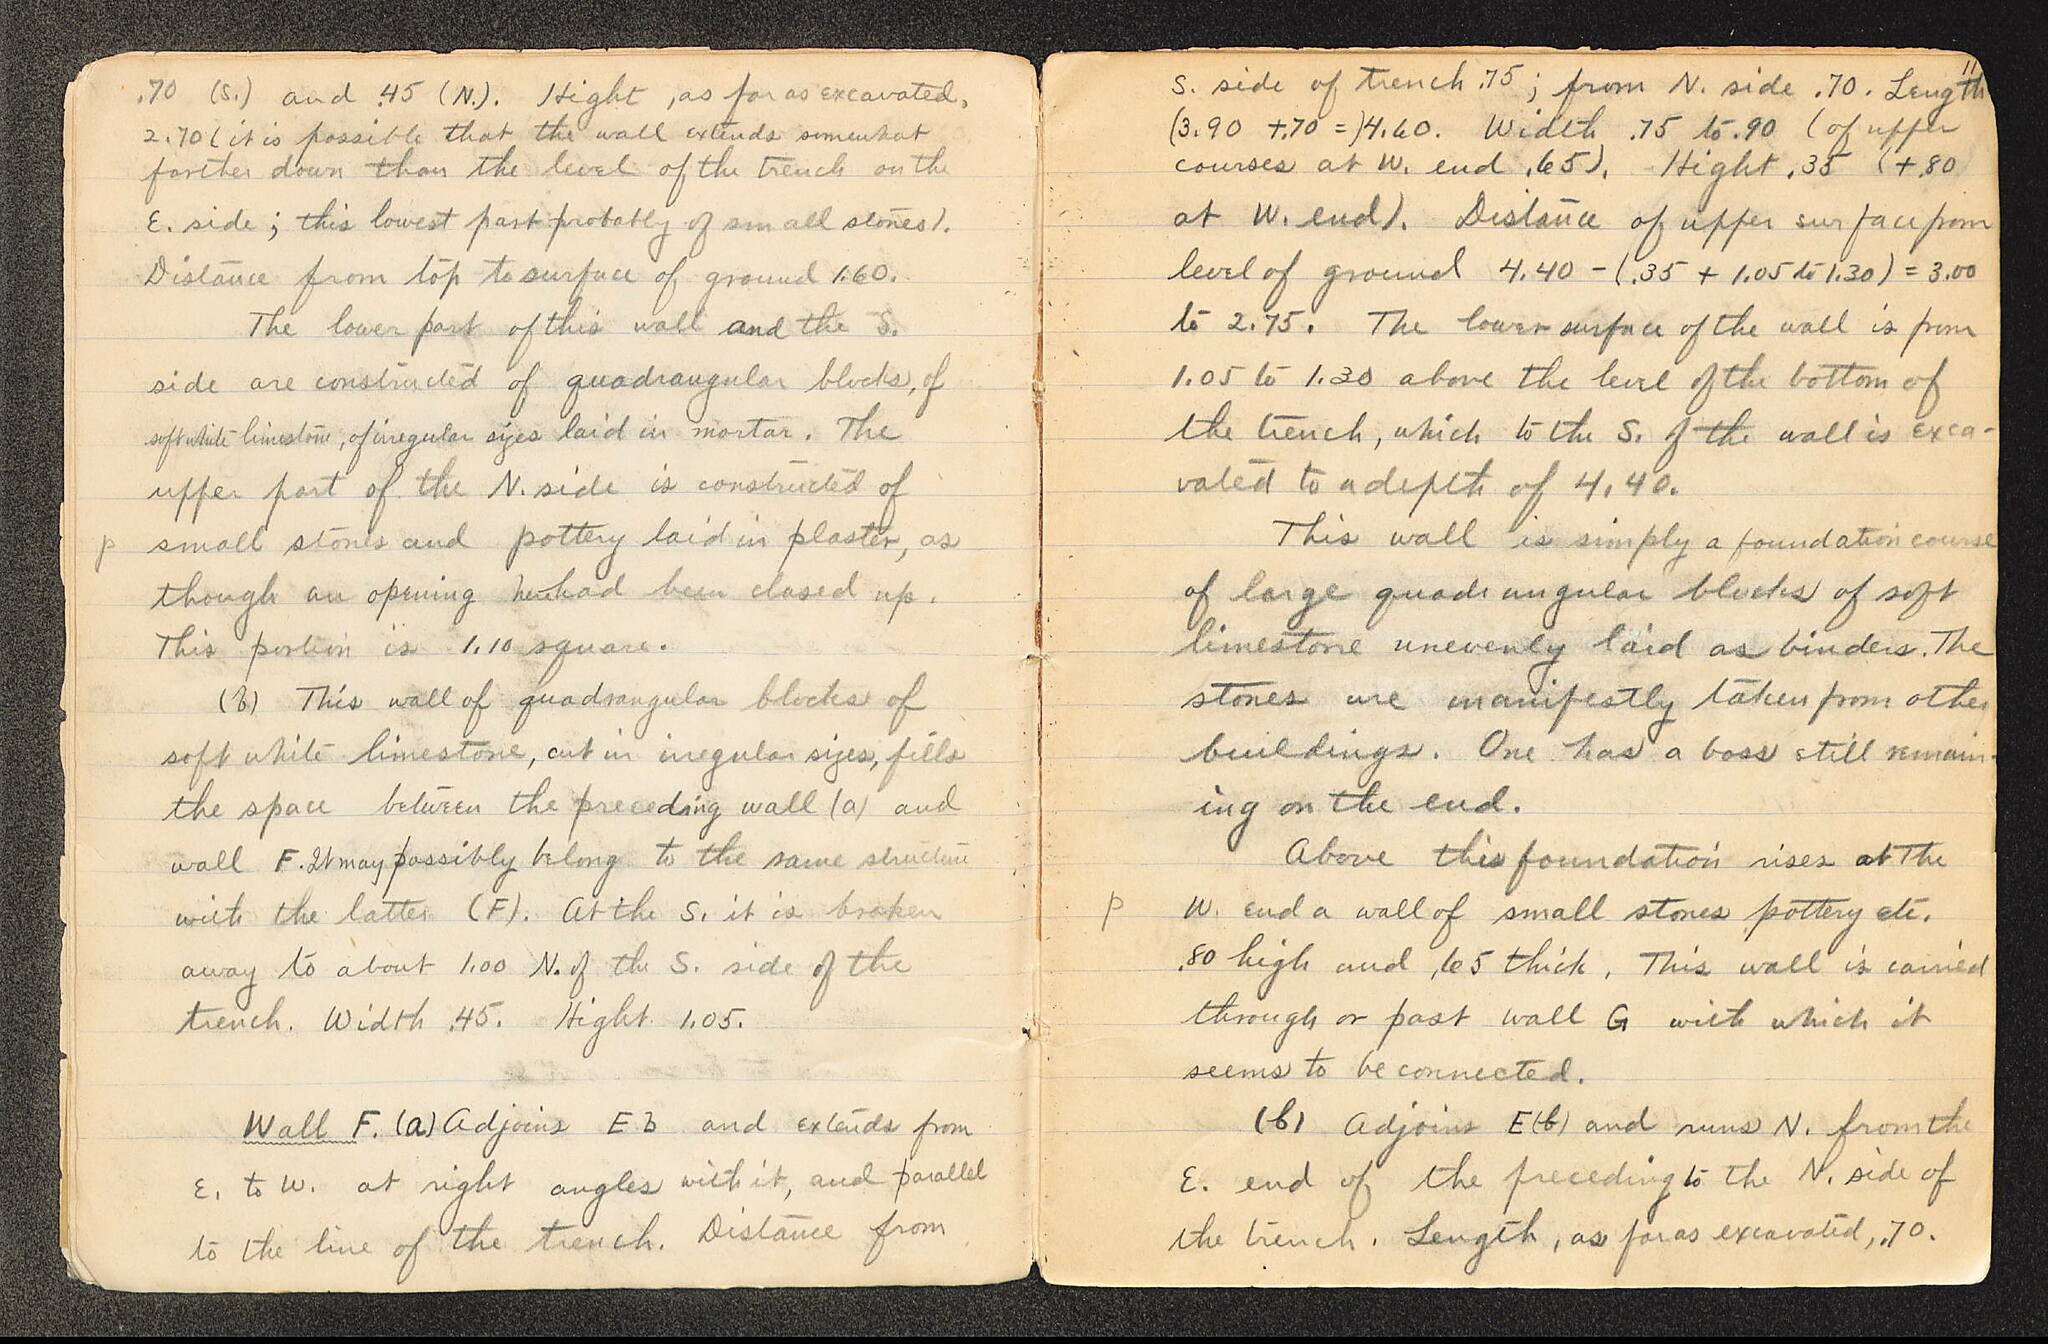 .70 (S.) and .45 (N.). Hight, as far as excavated,
2.70 (it is possible that the wall extends somewhat
farther down than the level of the trench on the
E. side; this lowest part probably of small stones).
Distance from top to surface of ground 1.60.
The lower part of this wall and the S.
side are constructed of quadrangular blocks, of
soft white limestone, of irregular sizes laid in mortar. The
upper part of the N. side is constructed of
p small stones and pottery laid in plaster, as
though an opening here had been closed up.
This portion is 1.10 square.
(b) This wall of quadrangular blocks of
soft white limestone, cut in irregular sizes, fills
the space between the preceding wall (a) and
wall F. It may possibly belong to the same structure
with the latter (F). At the S. it is broken
away to about 1.00 N. of the S. side of the
trench. Width .45. Hight 1.05.
Wall F. (a) Adjoins E b and extends from
E. to W. at right angles with it, and parallel
to the line of the trench. Distance from
11
S. side of trench .75; from N. side .70. Length
(3.90 + .70 =) 4.60. Width .75 to .90 (of upper
courses at W. end .65). Hight .35 (+ .80
at W. end). Distance of upper surface from
level of ground 4.40 - (.35 + 1.05 to 1.30) = 3.00
to 2.75. The lower surface of the wall is from
1.05 to 1.30 above the level of the bottom of
the trench, which to the S. of the wall is exca-
vated to a depth of 4.40.
This wall is simply a foundation course
of large quadrangular blocks of soft
limestone unevenly laid as binders. The
stones are manifestly taken from other
buildings. One has a boss still remain-
ing on the end.
Above this foundation rises at the
p W. end a wall of small stones pottery etc.
.80 high and .65 thick. This wall is carried
through or past wall G with which it
seems to be connected.
(b) Adjoins E(b) and runs N. from the
E. end of the preceding to the N. side of
the trench. Length, as far as excavated, .70.